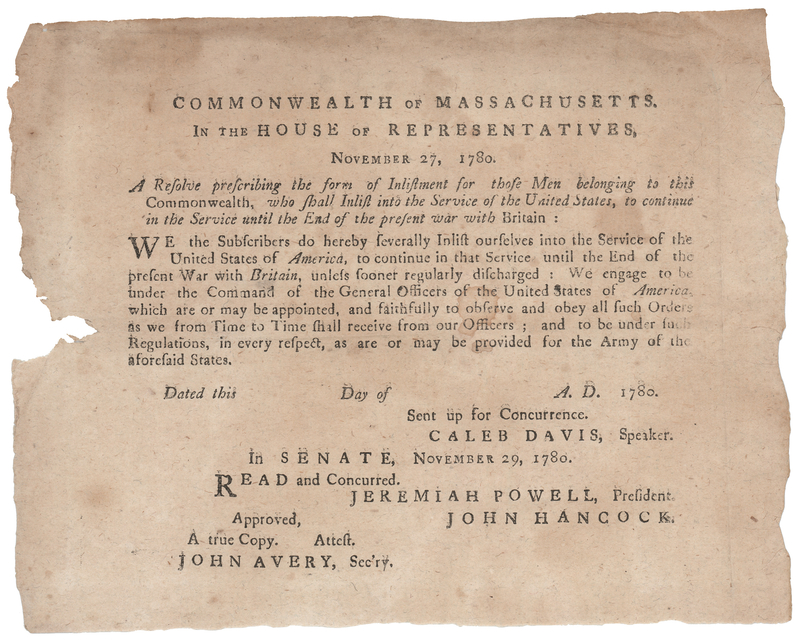 COMMONWEALTH OF MASSACHUSETTS.
IN THE HOUSE OF REPRESENTATIVES,
NOVEMBER 27, 1780.
A Reſolve preſcribing the form of Inliſtment for thoſe Men belonging to this
Commonwealth, who ſhall Inliſt into the Service of the United States, to continue
in the Service until the End of the preſent war with Britain :
WE the Subſcribers do hereby ſeverally Inliſt ourſelves into the Service of the
United States of America, to continue in that Service until the End of the
preſent War with Britain, unleſs ſooner regularly diſcharged : We engage to be
under the Command of the General Officers of the United States of America,
which are or may be appointed, and faithfully to obſerve and obey all ſuch Orders
as we from Time to Time ſhall receive from our Officers ; and to be under ſuch
Regulations, in every reſpect, as are or may be provided for the Army of the
aforeſaid States.
Dated this Day of A. D. 1780.
Sent up for Concurrence.
CALEB DAVIS, Speaker.
In SENATE, NOVEMBER 29, 1780.
READ and Concurred.
JEREMIAH POWELL, Preſident.
Approved, JOHN HANCOCK.
A true Copy. Atteſt.
JOHN AVERY, Sec'ry.